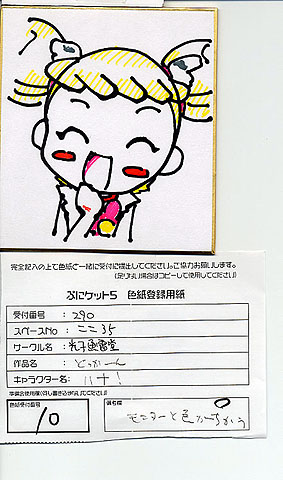 完全記入の上で色紙と一緒に受付に提出してください。ご協力お願いします。
(足りない場合はコピーして使用してください)
ぷにケット5 色紙登録用紙
受付番号 : 290
スペースNo : ここ35
サークル名:
作品名 : どっかーん
キャラクター名: ハナ!
色紙受付番号
10
備考欄
モニターと色がちがう